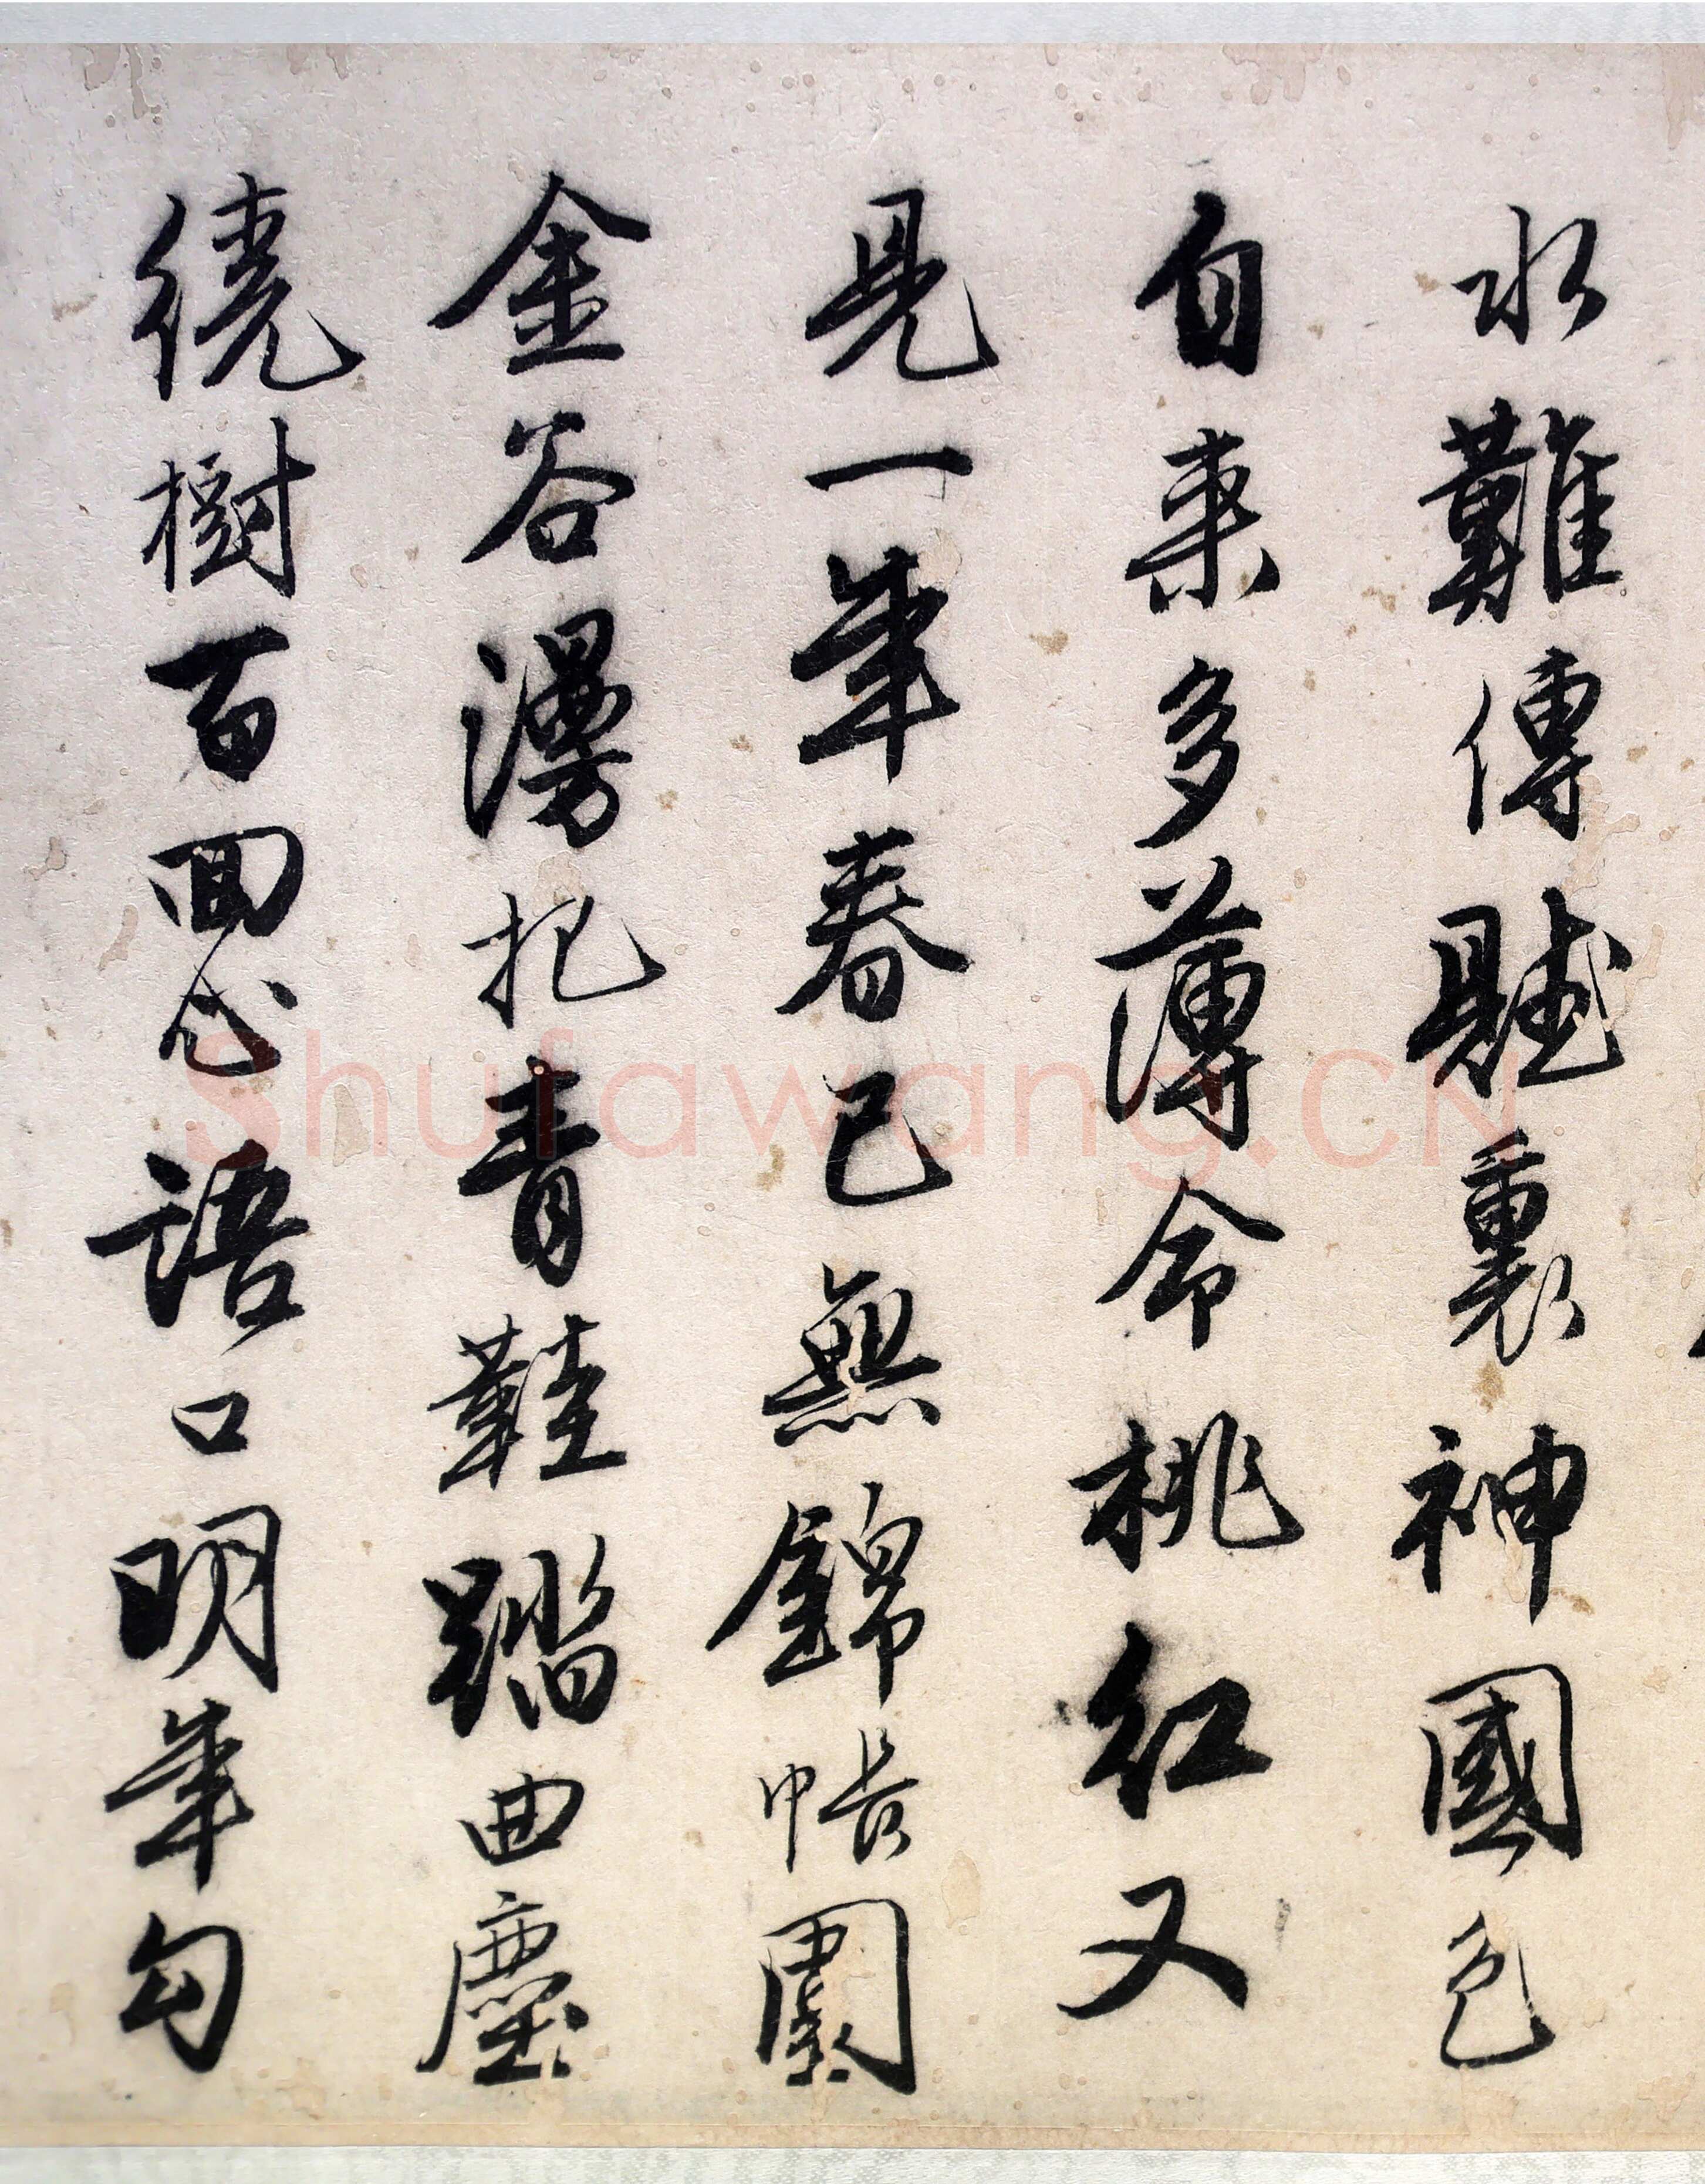 水難傳賦裏神國色
自来多薄命桃紅又
見一年春已無錦帳圍
金谷漫把青鞋踏曲塵
繞樹百回心語口明年勾
Shufawang.CN